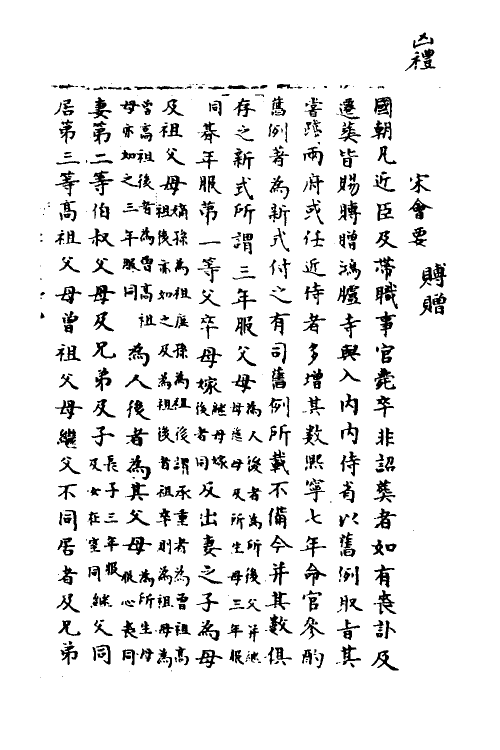 凶禮
宋會要
賻贈
國朝凡近臣及帶職事官薨卒非詔葬者如有喪訃及
遷葬皆賜賻贈鴻臚寺與入內內侍省以舊例取旨其
嘗踐兩府或任近侍者多增其數熙寧七年命官參酌
舊例著為新式付之有司舊例所載不備今并其數俱
存之新式所謂三年服父母為人後者為所後父并繼母慈母及所生母三年服
同朞年服第一等父卒母嫁繼母嫁後者同及出妻之子為母
及祖父母嫡孫為祖庶孫為祖後謂承重者為曾祖高祖後亦如之及為祖後者祖卒則為祖母為
曾高祖後者為曾高祖母亦如之三年服同為人後者為其父母為所生母服心喪同
妻第二等伯叔父母及兄弟及子長子三年服及女在室同繼父同
居第三等高祖父母曾祖父母繼父不同居者及兄弟